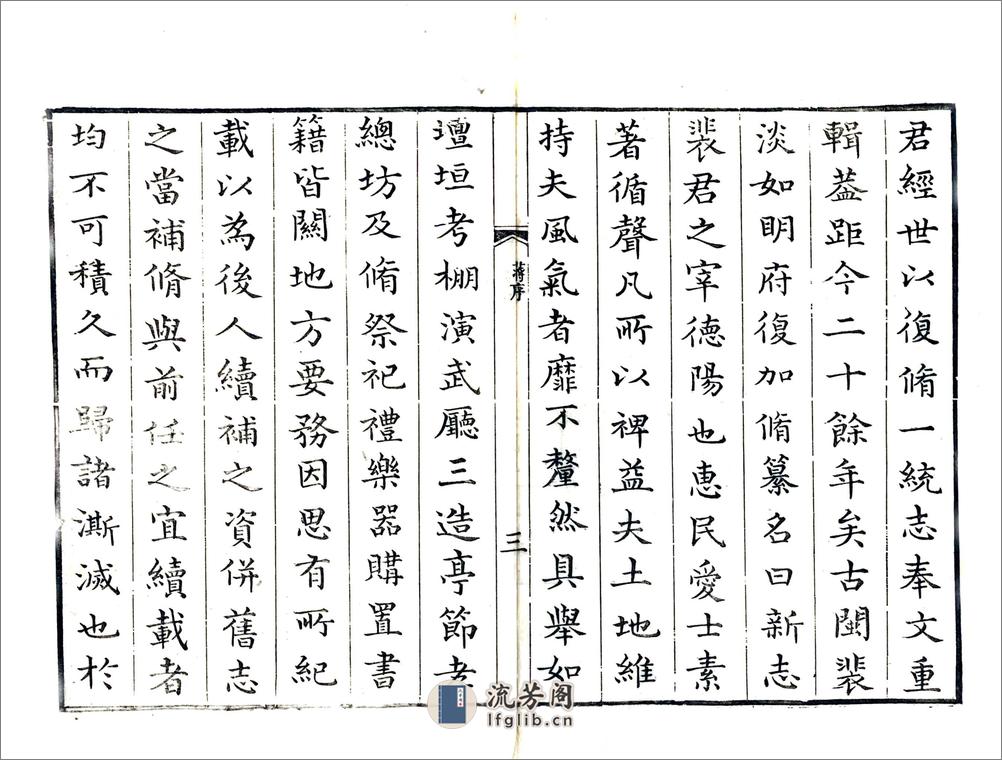 君經世以復脩一統志奉文重
輯葢距今二十餘年矣古閩裴
淡如明府復加脩纂名曰新志
裴君之宰德陽也惠民愛士素
著循聲凡所以裨益夫土地維
持夫風氣者靡不釐然具舉如
蔣序
三
壇垣考棚演武廳三造亭節孝
總坊及脩祭祀禮樂器購置書
籍皆關地方要務因思有所紀
載以為後人續補之資併舊志
之當補脩與前任之宜續載者
均不可積久而歸諸澌滅也於
流芳阁
lfglib.cn